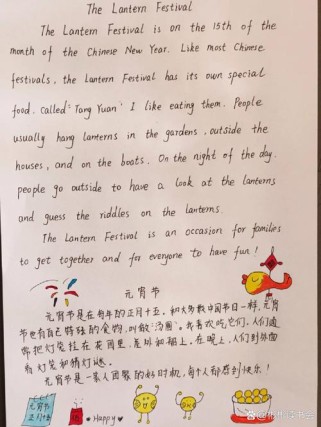 The Lantern Festival
The Lantern Festival is on the 15th of the
month of the Chinese New Year. Like most Chinese
festivals, the Lantern Festival has its own special
food. Called "Tang Yuan" I like eating them. People
usually hang lanterns in the gardens, outside the
houses, and on the boats. On the night of the day.
people go outside to have a look at the lanterns
and guess the riddles on the lanterns.
The Lantern Festival is an occasion for families
to get together and for everyone to have fun!
元宵节
元宵节是在每年的正月十五。和大多数中国节日一样,元宵
节也有自己特殊的食物,叫做"汤圆"。我喜欢吃它们。人们通
常把灯笼挂在花园里,屋外和船上。在晚上,人们到外面
看灯笼和猜灯谜。
元宵节是一家人团聚的好时机,每个人都感到快乐!
元宵节
正月十五
Happy